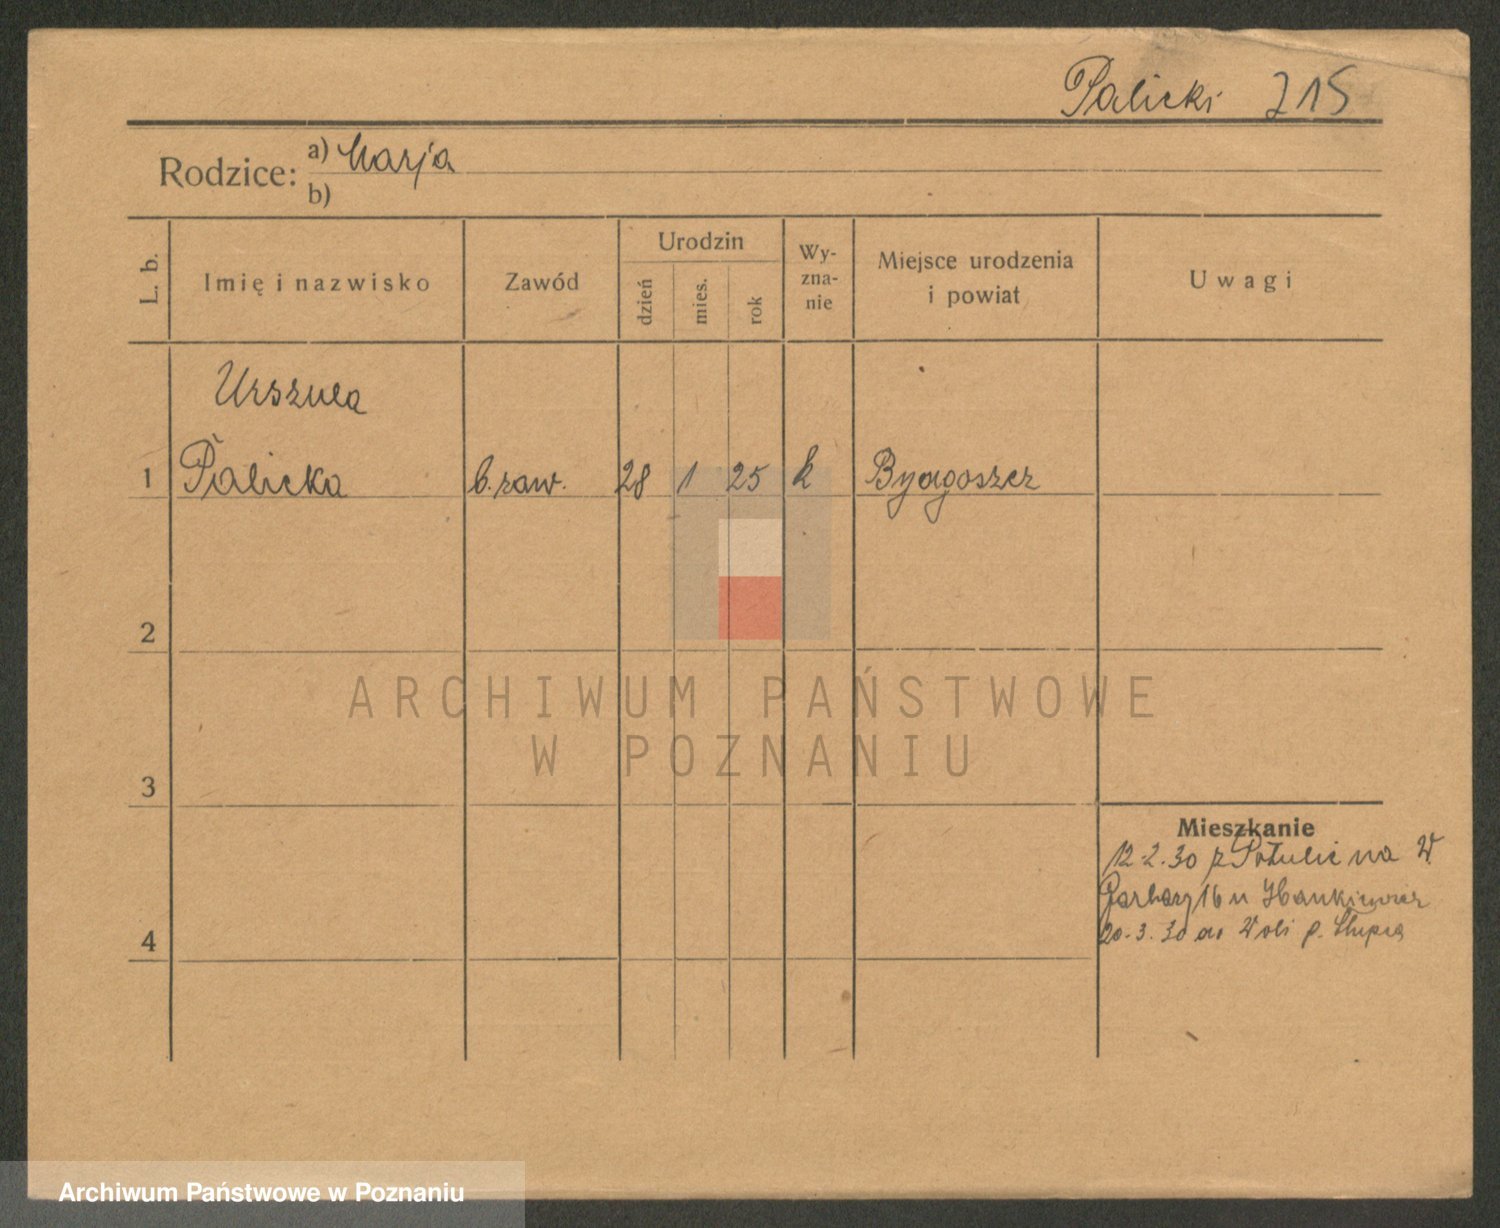 Palicki 715
Rodzice: a) Marja
b)
L. b.
Imię i nazwisko
Zawód
Urodzin
dzień
mies.
rok
Wy-
zna-
nie
Miejsce urodzenia
i powiat
Uwagi
Urszula
1 Palicka b. zaw. 28 1 25 k Bydgoszcz
2
ARCHIWUM PAŃSTWOWE
W POZNANIU
3
Mieszkanie
12.2.30 z Potulic na W.
Garbary 16 u Hankiewicz
20.3.30 do Woli p. Słupca
4
Archiwum Państwowe w Poznaniu